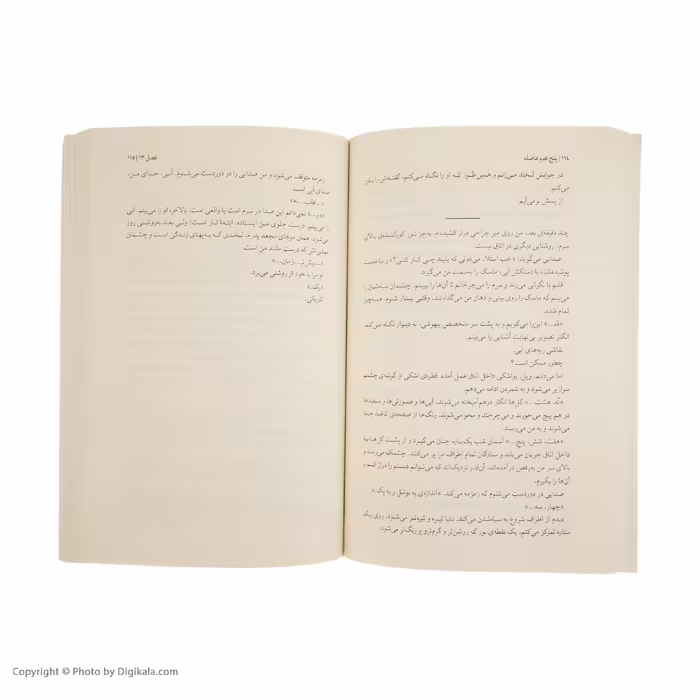 ۱۱۴ | پنج قدم فاصله
در جوابش لبخند می‌زنم و همین‌طور که او را نگاه می‌کنم، گفته‌ش را باور
می‌کنم.
از پسش برمی‌آیم.
چند دقیقه‌ی بعد، من روی میز جراحی دراز کشیده‌ام. به‌جز نور کورکننده‌ی بالای
سرم، روشنایی دیگری در اتاق نیست.
صدایی می‌گوید: «خب استلا، می‌دونی که باید چی کار کنی؟» و با دست
پوشیده‌شده با دستکش آبی، ماسک را به‌سمت من می‌گیرد.
قلبم با نگرانی می‌زند و سرم را می‌چرخانم تا آن‌ها را ببینم. چشمان سیاهشان را
می‌بینم که ماسک را روی بینی و دهان من می‌گذارند. وقتی بیدار شوم، همه‌چیز
تمام شده.
«ده...» این را می‌گویم و به پشت سر متخصص بیهوشی، به دیوار نگاه می‌کنم.
انگار تصویر بی‌نهایت آشنایی را می‌بینم.
نقاشی ریه‌های ابی.
چطور ممکن است؟
اما می‌دانم. ویل. یواشکی داخل اتاق عمل آمده. قطره‌ی اشکی از گوشه‌ی چشمم
سرازیر می‌شود و به شمردن ادامه می‌دهم.
«نُه، هشت...» گل‌ها انگار درهم‌آمیخته می‌شوند، آبی‌ها و صورتی‌ها و سفیدها
در هم پیچ می‌خورند و می‌چرخند و محو می‌شوند، رنگ‌ها از صفحه‌ی کاغذ جدا
می‌شوند و به من می‌رسند.
«هفت، شش، پنج...» آسمان شب یک‌باره جان می‌گیرد و از پشت گل‌ها به
داخل اتاق جریان می‌یابد و ستارگان تمام اطراف مرا پر می‌کنند. چشمک می‌زنند و
بالای سر من به‌رقص درآمده‌اند، آن‌قدر نزدیک‌اند که می‌توانم دستم را دراز کنم و
آن‌ها را بگیرم.
صدایی در دوردست می‌شنوم که زمزمه می‌کند. «اندازه‌ی یه بوشل و یه پک.»
«چهار، سه...»
دیدم از اطراف شروع به سیاه‌شدن می‌کند. دنیا تیره و تیره‌تر می‌شود. روی یک
ستاره تمرکز می‌کنم، یک نقطه‌ی نور که روشن‌تر و گرم‌تر و پررنگ‌تر می‌شود.
فصل ۱۳ | ۱۱۵
زمزمه متوقف می‌شود و من صدایی را در دوردست می‌شنوم. اَبی. خدای من،
صدای اَبی است.
نمی‌دانم این صدا در سرم است یا واقعی است. بالاخره او را می‌بینم. اَبی
را می‌بینم. درست جلوی من ایستاده، ابتدا تار است؛ ولی بعد به‌روشنی روز
می‌شود. همان موهای مجعد پدرم، لبخندی که به‌پهنای زندگی است و چشمان
میشی‌اش که درست مانند من است.
نور مرا با خود از روشنی می‌برد.
«یک.»
تاریکی.
Copyright © Photo by Digikala.com